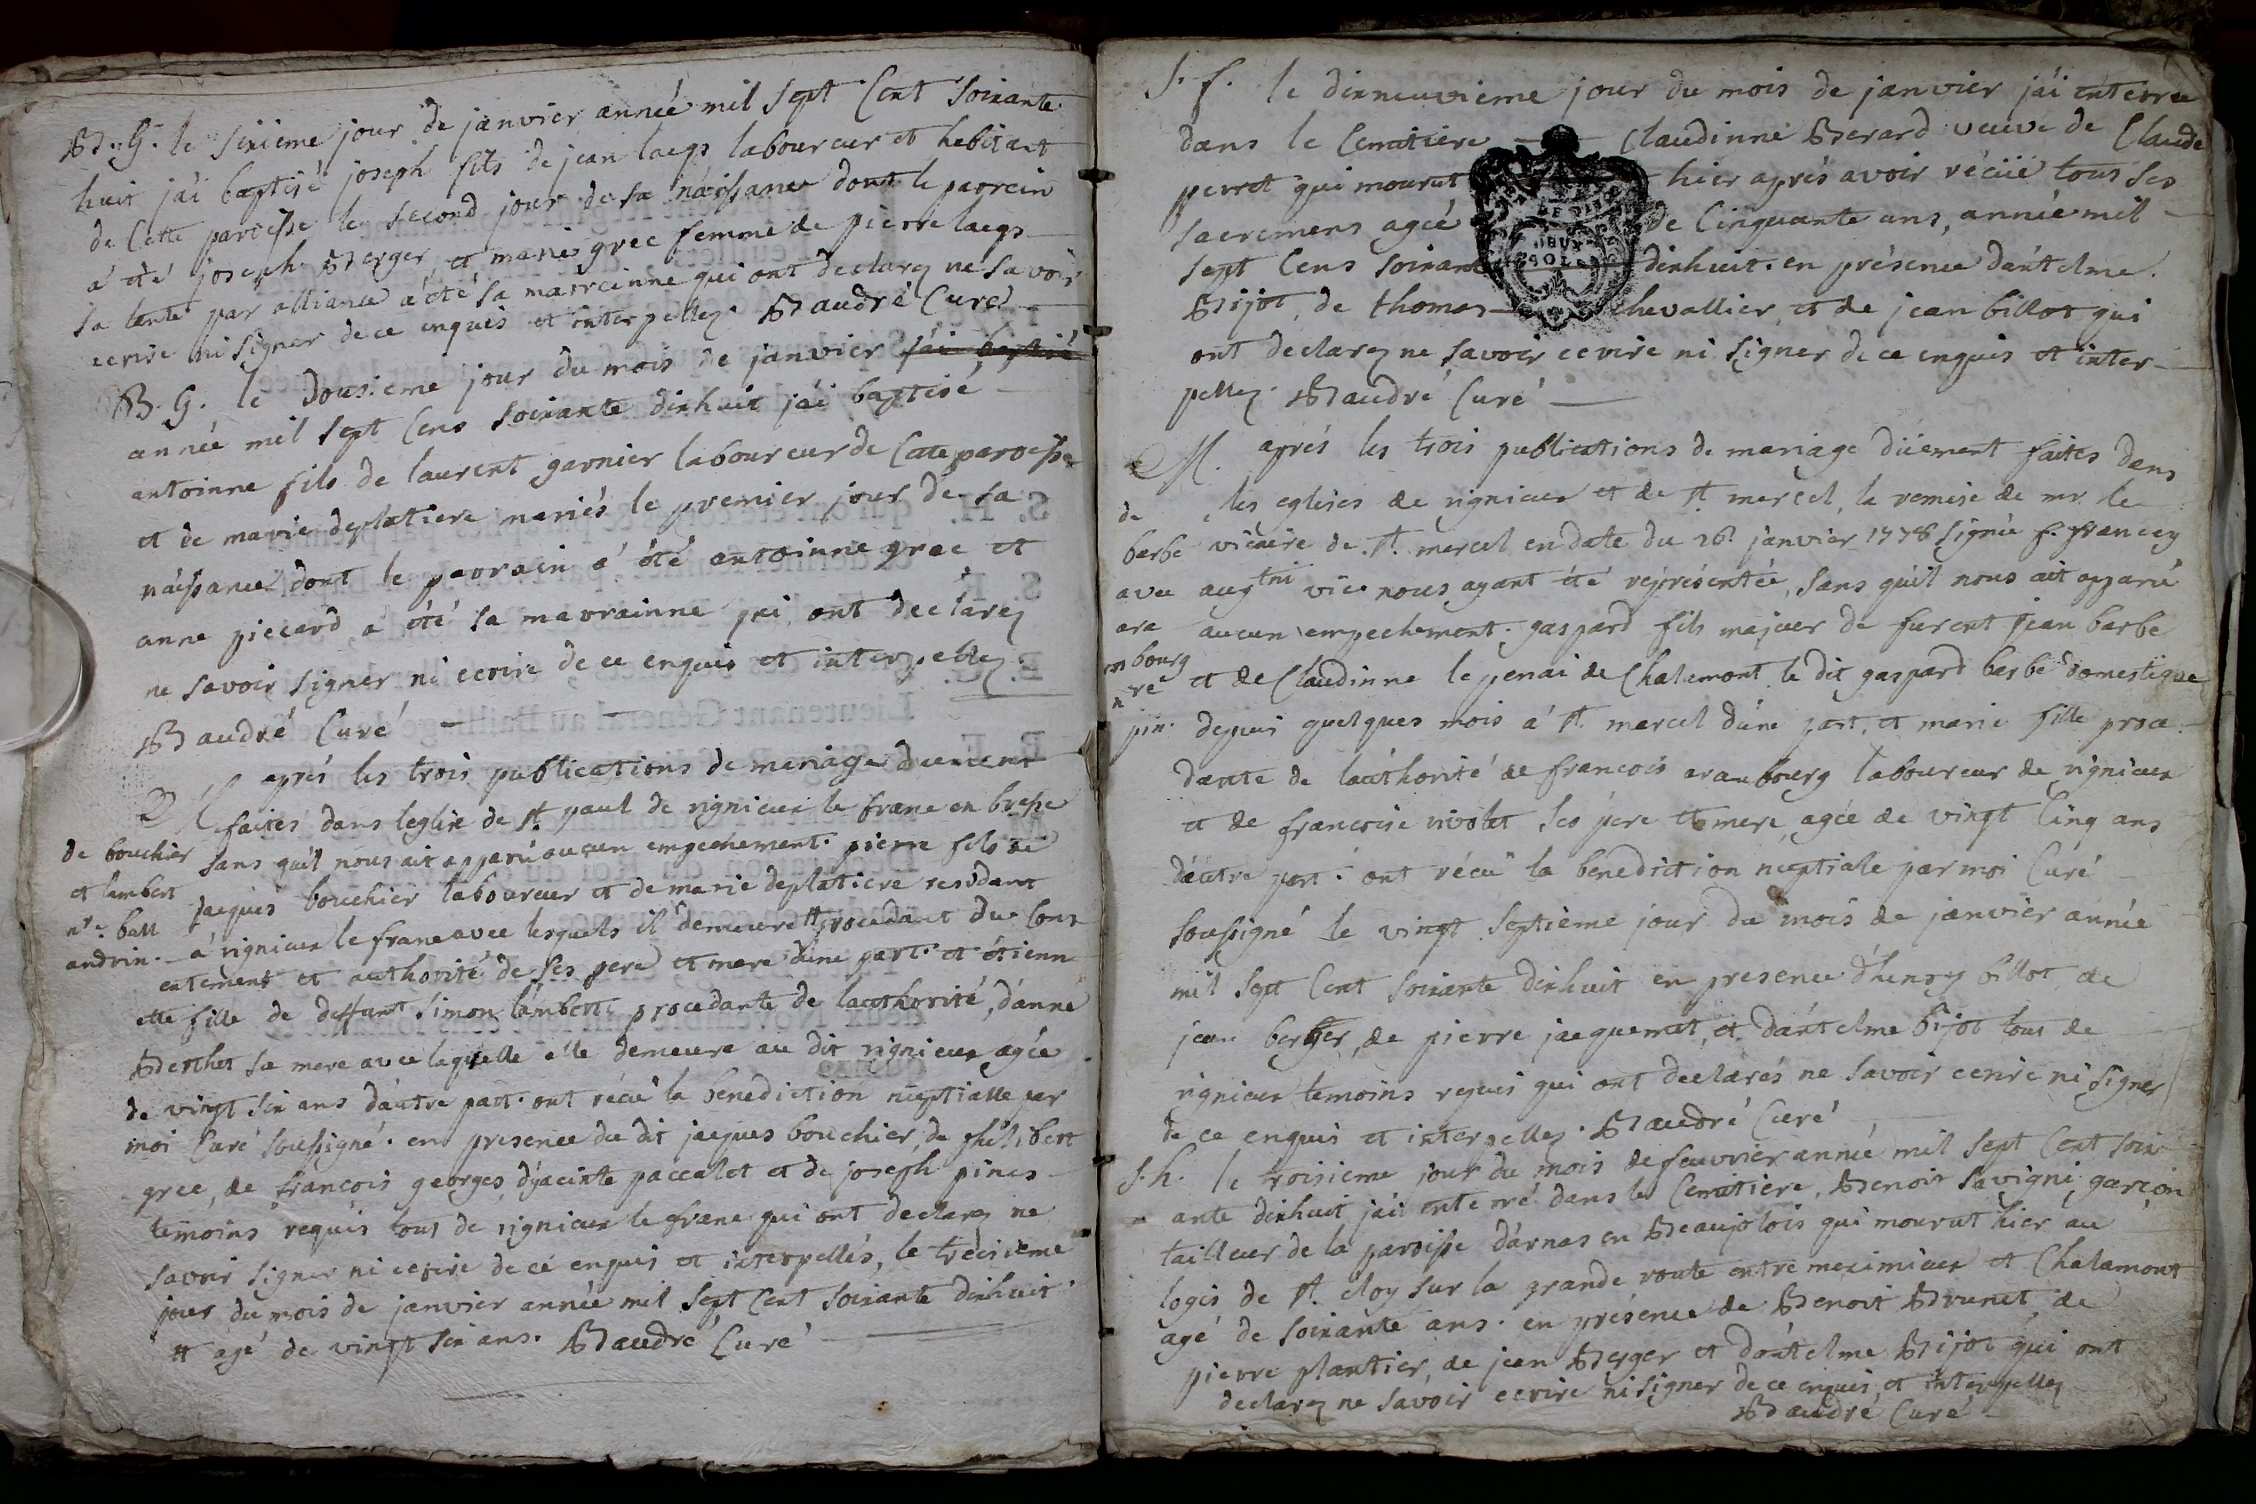 B. G. le sixieme jour de janvier année mil sept Cent soixante
huit j'ai baptisé joseph fils de jean laeps laboureur et habitant
de Cette paroisse le second jour de sa naissance dont le parrein
a été joseph Berger et marie gree femme de pierre laeps
sa tente par alliance a été sa marreinne qui ont declarez ne savoir
ecrire ni signer de ce enquis et interpellez. Baudré Curé
B. G. le dousieme jour du mois de janvier j'ai baptisé
année mil sept Cens soixante dixhuit j'ai baptisé
antoinne fils de laurent garnier laboureur de Cette paroisse
et de marie deplatiere mariés le premier jour de sa
naissance dont le parrain a été antoinne gree et
anne piccard a été sa marrainne qui ont declarez
ne savoir signer ni ecrire de ce enquis et interpellez.
Baudré Curé
M. aprés les trois publications de mariage duement
faites dans leglise de st. paul de rignieux le franc en bresse
de bouchier
et lambert
sans qu'il nous ait apparu aucun empechement. pierre fils de
jacques bouchier laboureur et de marie deplatiere residant
a rignieux le franc avec lesquels il demeure # procedant du cons
entement et authorité de ses pere et mere d'une part. et étienn
ette fille de deffunt simon lambert procedante de l'authorité d'anne
Berthet sa mere avec laquelle elle demeure au dit rignieux agée
de vingt six ans d'autre part. ont récu la benediction nuptialle par
moi Curé soussigné. en presence du dit jacques bouchier, de philibert
gree, de francois georges, d'yacinte paccalet et de joseph pines
temoins requis tous de rignieux le franc qui ont declarez ne
savoir signer ni ecrire de cé enquis et interpellés, le treisieme
jour du mois de janvier année mil sept Cent soixante dixhuit
# agé de vingt six ans. Baudré Curé
S. f. le dixneuvieme jour du mois de janvier j'ai enterré
dans le Cemitiere Claudinne Berard veuve de Claude
perret qui mourut hier aprés avoir récüe tous ses
sacremens agée de Cinquante ans, année mil
sept Cens soixante dixhuit. en présence d'antelme
Bijot, de thomas chevallier, et de jean billot qui
ont declarez ne savoir ecrire ni signer de ce enquis et inter
pellez. Baudré Curé
M. aprés les trois publications de mariage düement faites dans
les eglises de rignieux et de st. marcel, la remise de mr. le
de
barbe
avec
ara
mbourg
vicaire de st. marcel en date du 26. janvier 1778 signée f. francey
augtni vic. nous ayant été représentée, sans qu'il nous ait apparu
aucun empechement. gaspard fils majeur de furent jean barbe
et de Claudinne le penai de Chalamont le dit gaspard barbe domestique
depuis quelques mois a st. marcel d'une part, et marie fille proce
dante de l'authorité de francois arambourg laboureur de rignieux
et de francoise rivolet ses pere et mere, agée de vingt Cinq ans
d'autre part. ont récu la benediction nuptiale par moi Curé
soussigné le vingt septième jour du mois de janvier année
mil sept Cent soixante dixhuit en presence d'henry billot de
jean berger, de pierre jacquemet, et d'antelme bijot tous de
rignieux temoins requis qui ont declarés ne savoir ecrire ni signer
de ce enquis et interpellez. Baudré Curé
S. h. le troisieme jour du mois de feuvrier année mil sept Cent soix
ante dixhuit j'ai enterré dans le Cemitiere, Benoit savigni garçon
tailleur de la paroisse d'arnas en Beaujolois qui mourut hier au
logis de st. eloy sur la grande route entre meximieux et Chalamont
agé de soixante ans. en présence de Benoit Brunet, de
pierre plantier, de jean Berger et d'antelme Bijot qui ont
declarez ne savoir ecrire ni signer de ce enquis et interpellez
Baudré Curé